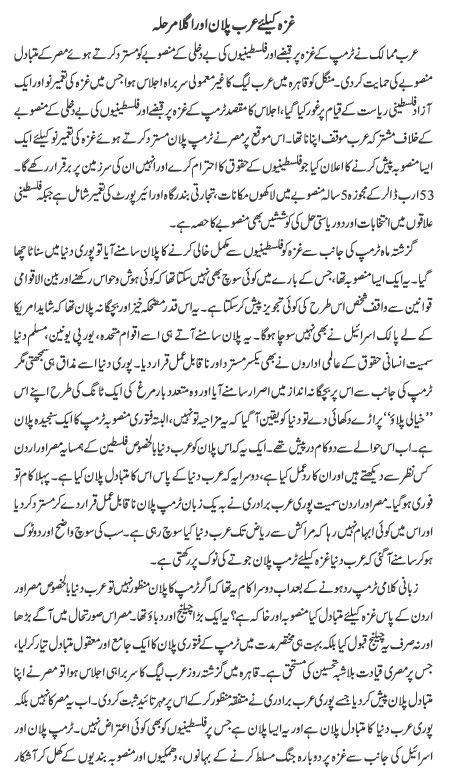 غزہ کیلئے عرب پلان اور اگلا مرحلہ
عرب ممالک نے ٹرمپ کے غزہ پر قبضے اور فلسطینیوں کی بے دخلی کے منصوبے کو مسترد کرتے ہوئے مصر کے متبادل
منصوبے کی حمایت کردی۔ منگل کو قاہرہ میں عرب لیگ کا غیر معمولی سربراہ اجلاس ہوا جس میں غزہ کی تعمیر نو اور ایک
آزاد فلسطینی ریاست کے قیام پر غور کیا گیا، اجلاس کا مقصد ٹرمپ کے غزہ پر قبضے اور فلسطینیوں کی بے دخلی کے منصوبے
کے خلاف مشترکہ عرب موقف اپنانا تھا۔ اس موقع پر مصر نے ٹرمپ پلان مسترد کرتے ہوئے غزہ کی تعمیر نو کیلئے ایک
ایسا منصوبہ پیش کرنے کا اعلان کیا جو فلسطینیوں کے حقوق کا احترام کرے اور انہیں ان کی سرزمین پر برقرار رکھے گا۔
53 ارب ڈالر کے مجوزہ 5 سالہ منصوبے میں لاکھوں مکانات، تجارتی بندرگاہ اور ائیرپورٹ کی تعمیر شامل ہے جبکہ فلسطینی
علاقوں میں انتخابات اور دو ریاستی حل کی کوششیں بھی منصوبے کا حصہ ہے۔
گزشتہ ماہ ٹرمپ کی جانب سے غزہ کو فلسطینیوں سے مکمل خالی کرنے کا پلان سامنے آیا تو پوری دنیا میں سناٹا چھا
گیا۔ یہ ایک ایسا منصوبہ تھا، جس کے بارے میں کوئی سوچ بھی نہیں سکتا تھا کہ کوئی ہوش وحواس رکھنے اور بین الاقوامی
قوانین سے واقف شخص اس طرح کی کوئی تجویز پیش کرسکتا ہے۔ یہ اس قدر مضحکہ خیز اور بچگانہ پلان تھا کہ شاید امریکا
کے لے پالک اسرائیل نے بھی نہیں سوچا ہوگا۔ یہ پلان سامنے آتے ہی اسے اقوام متحدہ، یورپی یونین، مسلم دنیا
سمیت انسانی حقوق کے عالمی اداروں نے بھی یکسر مسترد اور ناقابل عمل قرار دیا۔ پوری دنیا اسے مذاق ہی سمجھتی مگر
ٹرمپ کی جانب سے اس پر بچگانہ انداز میں اصرار سامنے آیا اور وہ متعدد بار مرغی کی ایک ٹانگ کی طرح اپنے اس
”خیالی پلاؤ“ پر اڑے دکھائی دے تو دنیا کو یقین آگیا کہ یہ مزاحیہ تو نہیں، البتہ فتوری منصوبہ ٹرمپ کا ایک سنجیدہ پلان
ہے۔ اب اس حوالے سے دو کام درپیش تھے۔ ایک یہ کہ اس پلان کو عرب دنیا بالخصوص فلسطین کے ہمسایہ مصر اور اردن
کس نظر سے دیکھتے ہیں اور ان کا ردعمل کیا ہے، دوسرا یہ کہ عرب دنیا کے پاس اس کا متبادل پلان کیا ہے۔ پہلا کام تو
فوری ہوگیا۔ مصر اور اردن سمیت پوری عرب برادری نے بہ یک زبان ٹرمپ پلان ناقابل عمل قرار دے کر مسترد کردیا
اور اس میں کوئی ابہام نہیں رہا کہ مراکش سے ریاض تک عرب دنیا کیا سوچ رہی ہے۔ سب کی سوچ واضح اور دوٹوک
ہوکر سامنے آگئی کہ عرب دنیا غزہ کیلئے ٹرمپ پلان جوتے کی نوک پر رکھتی ہے۔
زبانی کلامی ٹرمپ رد ہونے کے بعد اب دوسرا کام یہ تھا کہ اگر ٹرمپ کا پلان منظور نہیں تو عرب دنیا بالخصوص مصر اور
اردن کے پاس غزہ کیلئے متبادل کیا منصوبہ اور خاکہ ہے؟ یہ ایک بڑا چیلنج اور دباؤ تھا۔ مصر اس صورتحال میں آگے بڑھا
اور نہ صرف یہ چیلنج قبول کیا بلکہ بہت ہی مختصر مدت میں ٹرمپ کے فتوری پلان کا ایک جامع اور معقول متبادل تیار کرلیا،
جس پر مصری قیادت بلاشبہ تحسین کی مستحق ہے۔ قاہرہ میں گزشتہ روز عرب لیگ کا سربراہی اجلاس ہوا تو مصر نے اپنا
متبادل پلان پیش کردیا جسے پوری عرب برادری نے متفقہ منظور کرکے اس پر مہر تائید ثبت کردی۔ اب یہ مصر کا نہیں بلکہ
پوری عرب دنیا کا متبادل پلان ہے اور یہ ایسا پلان ہے جس پر فلسطینیوں کو بھی کوئی اعتراض نہیں۔ ٹرمپ پلان اور
اسرائیل کی جانب سے غزہ پر دوبارہ جنگ مسلط کرنے کے بہانوں، دھمکیوں اور منصوبہ بندیوں کے کھل کر آشکار